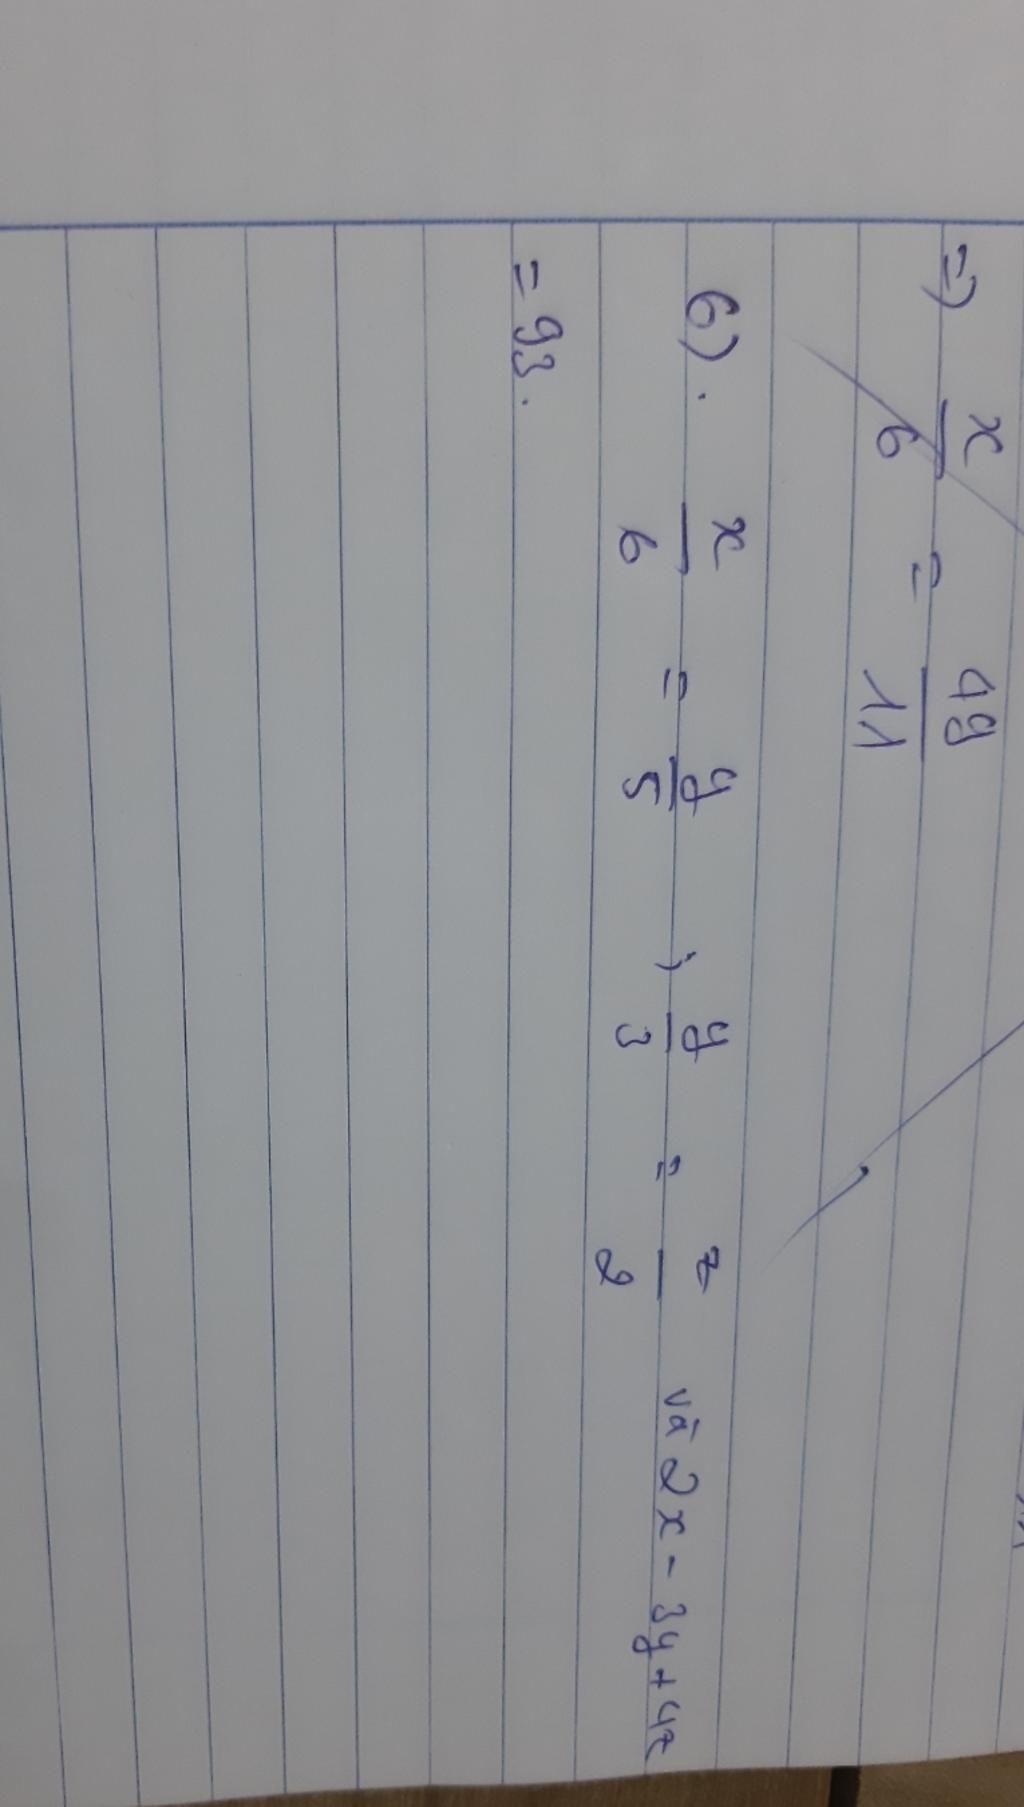 =) x/6 = 49/11
6). x/6 = y/5 ; y/3 = z/2 và 2x - 3y + 4z
= 93.